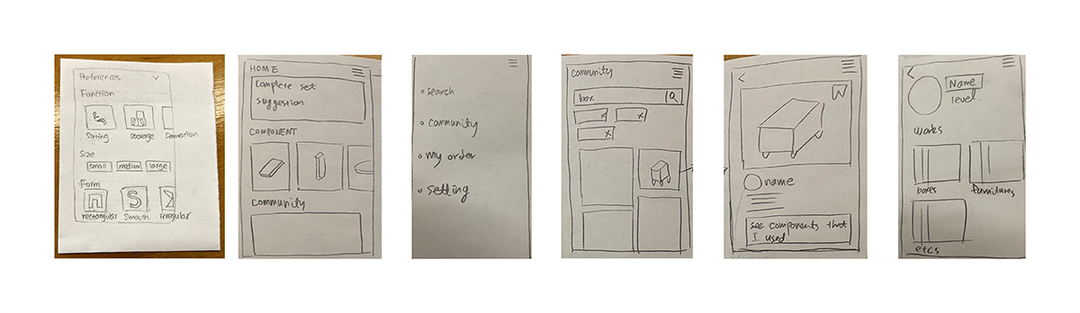 Preferences
Function
Sitting Storage Connection
Size
small medium large
Form
rectangular Smooth irregular
HOME
Complete set
suggestion
COMPONENT
Community
search
community
my order
setting
community
box
x x
x
name
see components that
I used
Name
level.
works
boxes furnitures
etcs